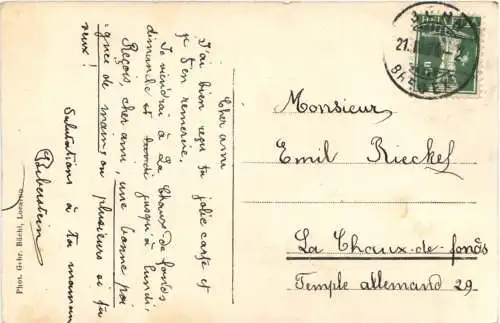 Cher ami
J'ai bien reçu ta jolie carte et
je t'en remercie.
Je viendrai à La Chaux de fonds
dimanche et lundi jusqu'à lundi,
Reçois, cher ami, une bonne poi
gnée de mains ou plusieurs si tu
veux!
Salutations à ta maman
Monsieur
Emil Rieckel
La Chaux-de-fonds
Temple allemand 29.
HELVETIA
21.
Phot. G-ie. Büchi, Locarno